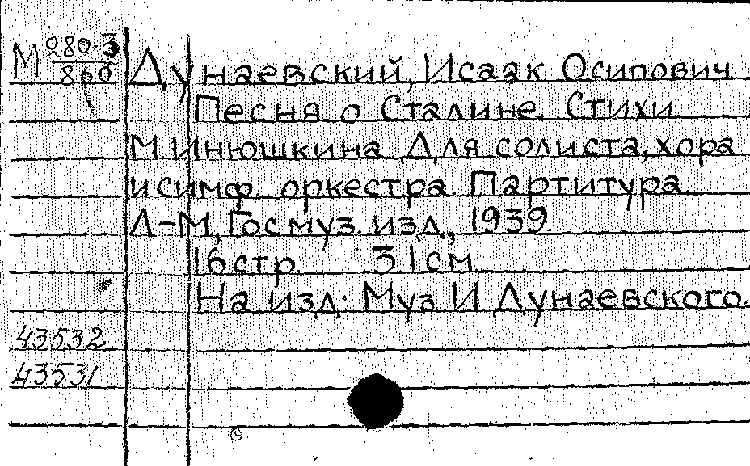 М 280-3/860
Дунаевский, Исаак Осипович
Песня о Сталине. Стихи
М. Инюшкина. Для солиста, хора
и симф. оркестра. Партитура.
Л-М, Госмуз. изд., 1939
16 стр. 31 см.
На изд: Муз И Дунаевского.
43532
43531